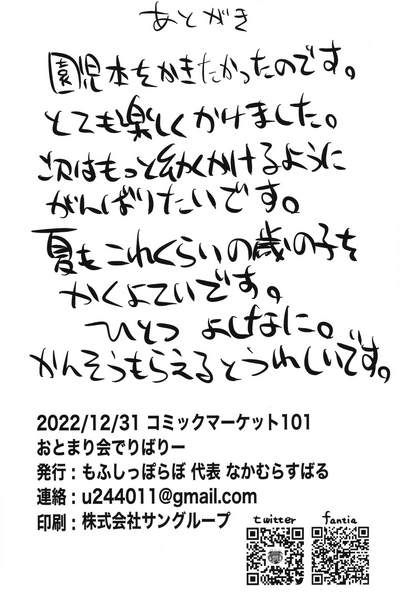 あとがき
園児本をかきたかったのです。
とても楽しくかけました。
次はもっと幼くかけるように
がんばりたいです。
夏もこれくらいの歳の子を
かくよていです。
ひとつ よしなに。
かんそうもらえるとうれしいです。
2022/12/31 コミックマーケット101
おとまり会でりばりー
発行：もふしっぽらぼ 代表 なかむらすばる
連絡：u244011@gmail.com
印刷：株式会社サングループ
twitter fantia